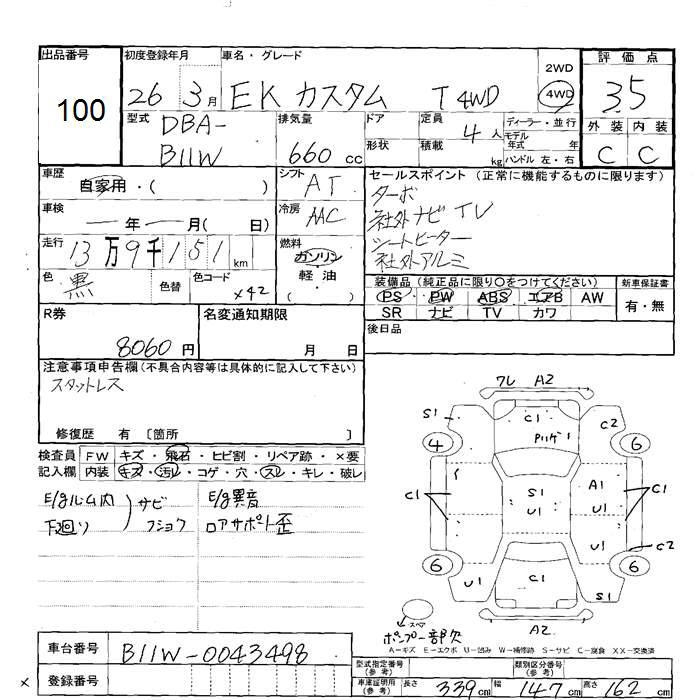 出品番号 初度登録年月 車名・グレード 2WD 評価点
100 26 3月 EK カスタム T 4WD 4WD 35
型式 DBA- 排気量 ドア 定員 4人 ディーラー・並行 外装 内装
B11W 660cc 形状 積載 kg モデル年式 年式 ハンドル 左・右 C C
車歴 シフト AT セールスポイント (正常に機能するものに限ります)
自家用・( ) ターボ
車検 ー年ー月( 日) 冷房 AAC 社外ナビ TV
走行 13万9千151km 燃料 ガソリン シートヒーター
軽・油 社外アルミ
色 黒 色替 色コード X42 ( )
装備品 (純正品に限り○をつけてください) 新車保証書
PS PW ABS エアB AW 有・無
SR ナビ TV カワ
R券 8060円 名変通知期限 月 日 後日品
注意事項申告欄(不具合内容等は具体的に記入して下さい)
スタットレス
修復歴 有 〔箇所 〕
検査員 FW キズ・飛石・ヒビ割・リペア跡・×要
記入欄 内装 キズ・汚レ・コゲ・穴・スレ・キレ・破レ
E/gルーム内 サビ E/g異音
下廻り フショク ロアサポート歪
ワレ A2
S1 C1 C2
4 P11ゲ1 6
C1 S1 A1 C1
U1 U1
U1 C2
6 6
U1 C1 S1
スペア A2
ポンプ一部欠
A−キズ E−エクボ U−凹み W−補修跡 S−サビ C−腐食 XX−交換済
車台番号 B11W-0043498
登録番号
型式指定番号(参考) 類別区分番号(参考)
車庫証明用(参考) 長さ 339cm 幅 147cm 高さ 162cm
×